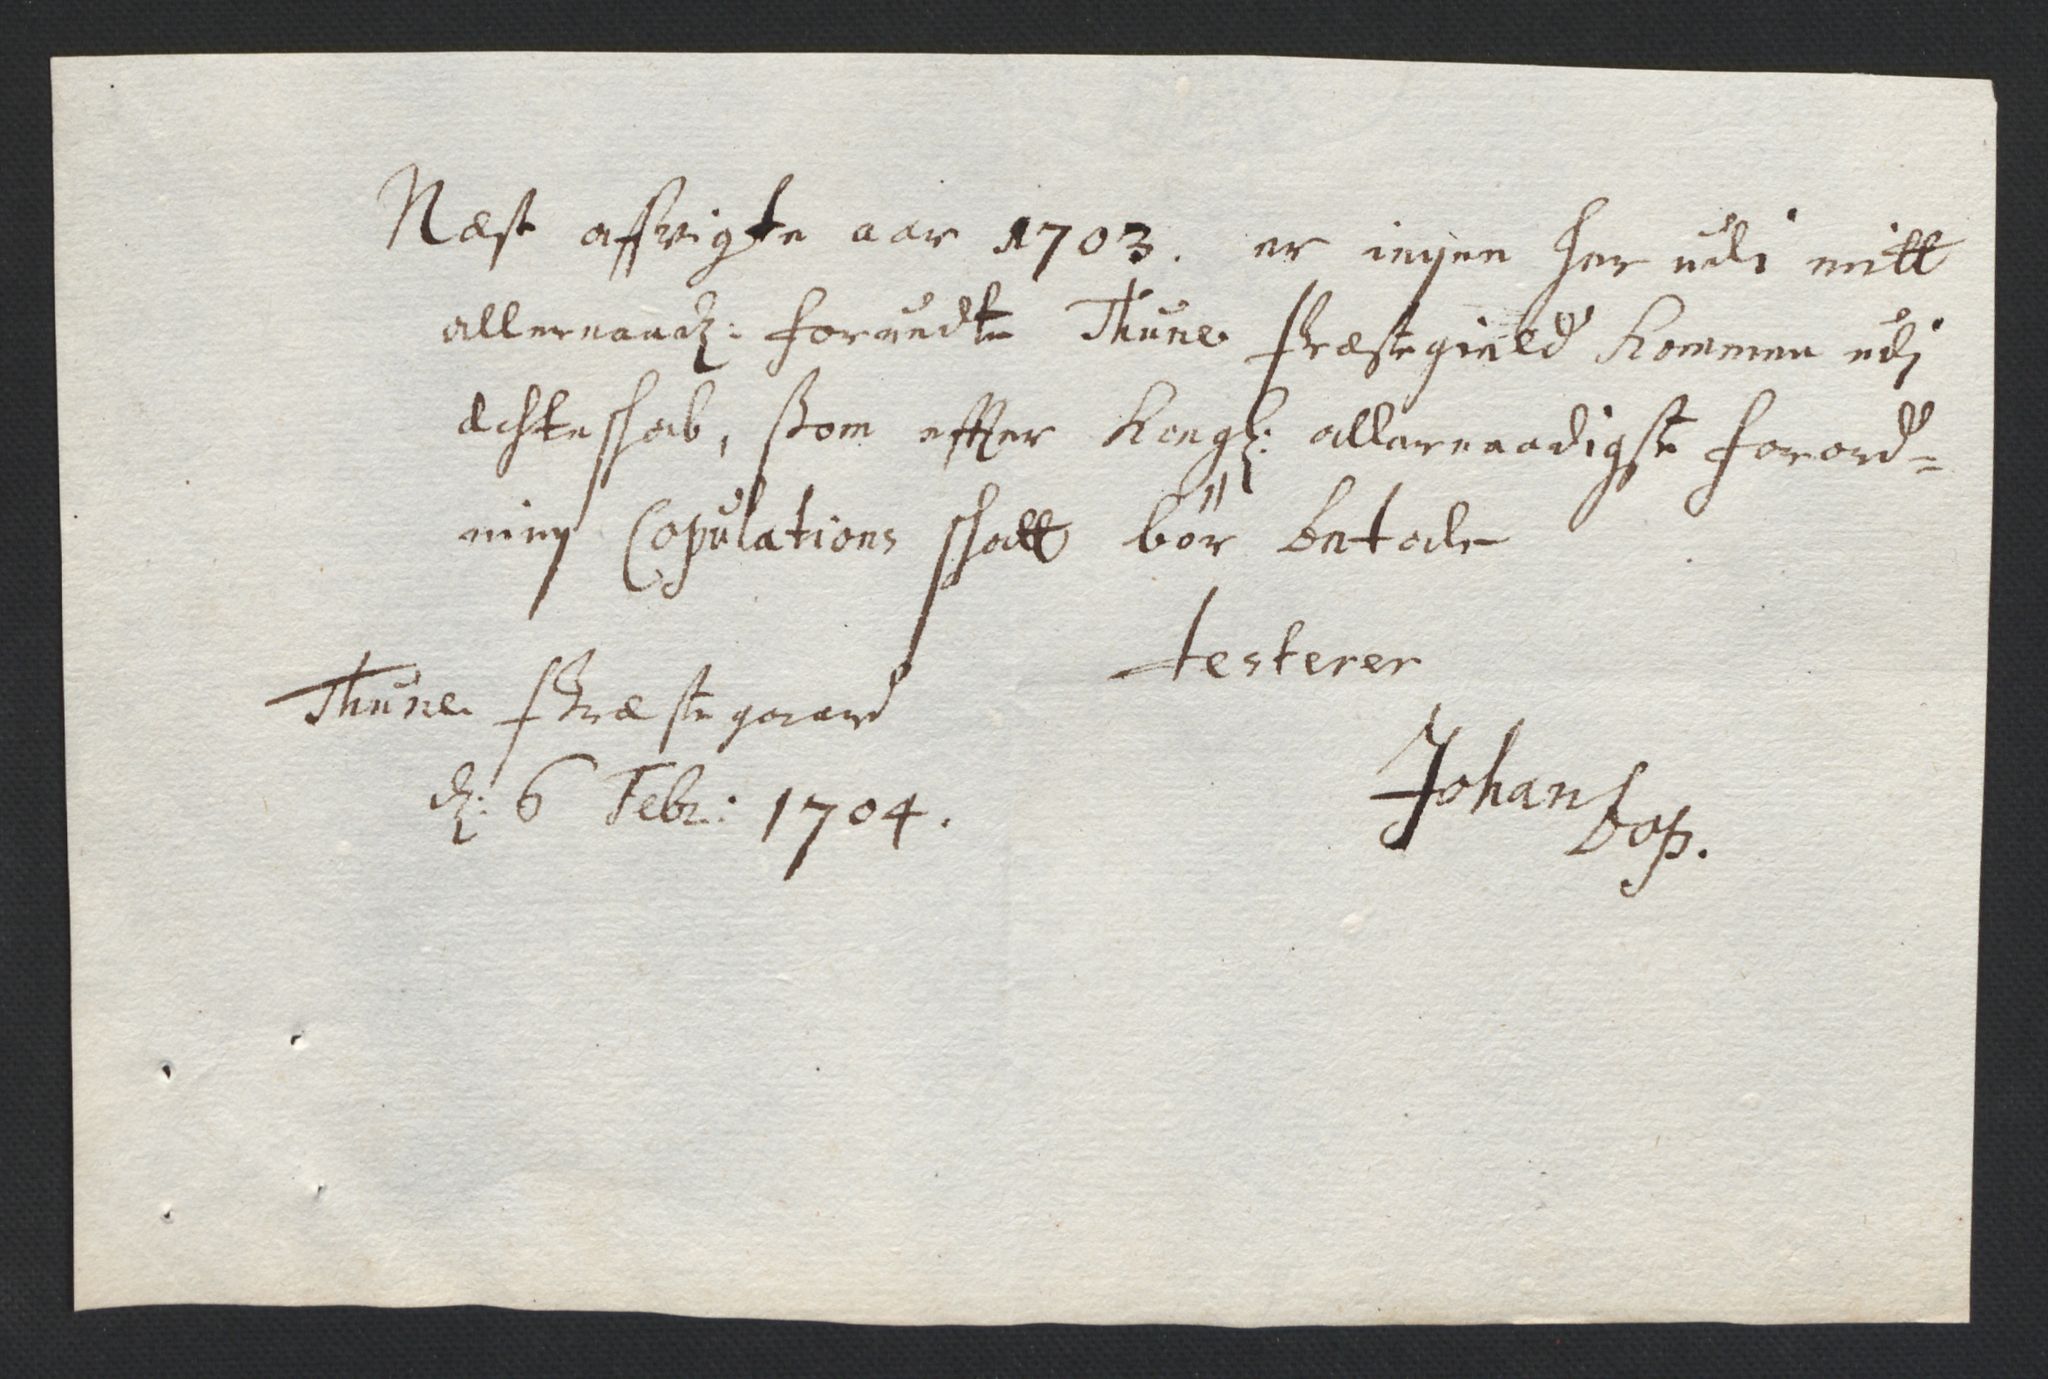 Næst afvigte aar 1703. er ingen her udi mitt
allernaad: forundte Thune Præstegield kommen udi
ächteschab, som effter Kongl: allernaadigste forord=
ning Copulations schatt bör betale
testerer
Thune Præstegaard
d: 6 Febr: 1704.
Johan